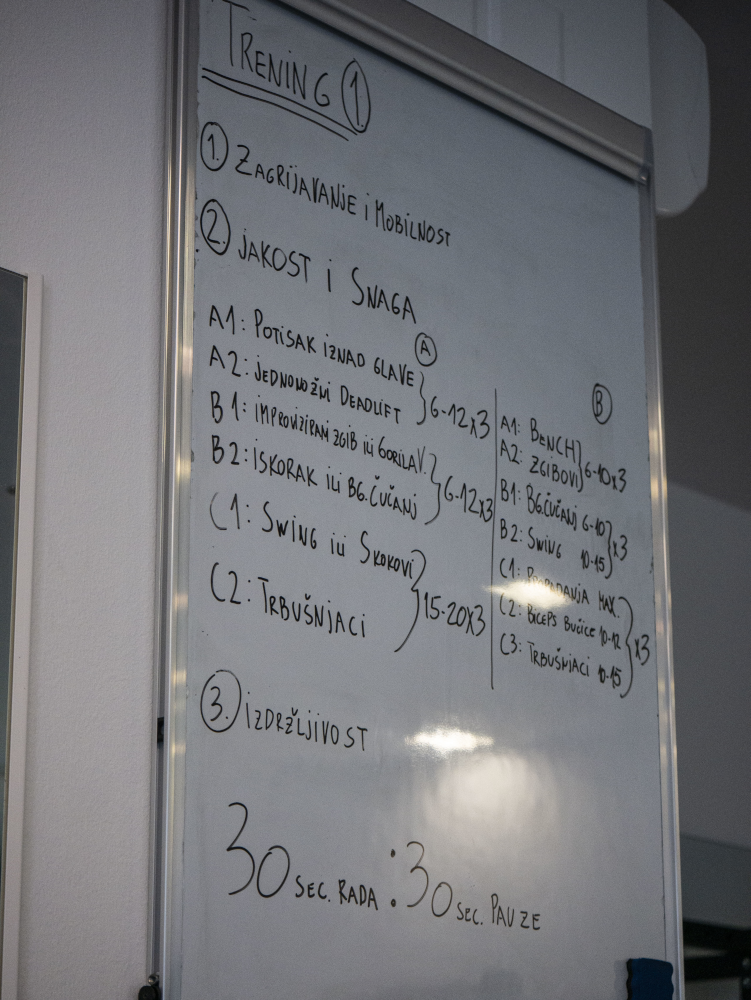 TRENING 1.
1. ZAGRIJAVANJE i MOBILNOST
2. JAKOST i SNAGA
A
A1: POTISAK IZNAD GLAVE
A2: JEDNONOŽNI DEADLIFT
} 6-12x3
B1: IMPROVIZIRANI ZGIB ili GORILA V.
B2: ISKORAK ili BG. ČUČANJ
} 6-12x3
C1: SWING ili SKOKOVI
C2: TRBUŠNJACI
} 15-20x3
B
A1: BENCH
A2: ZGIBOVI
} 6-10x3
B1: BG. ČUČANJ 6-10
B2: SWING 10-15
} x3
C1: PROPADANJA MAX.
C2: BICEPS BUČICE 10-12
C3: TRBUŠNJACI 10-15
} x3
3. IZDRŽLJIVOST
30 SEC. RADA : 30 SEC. PAUZE